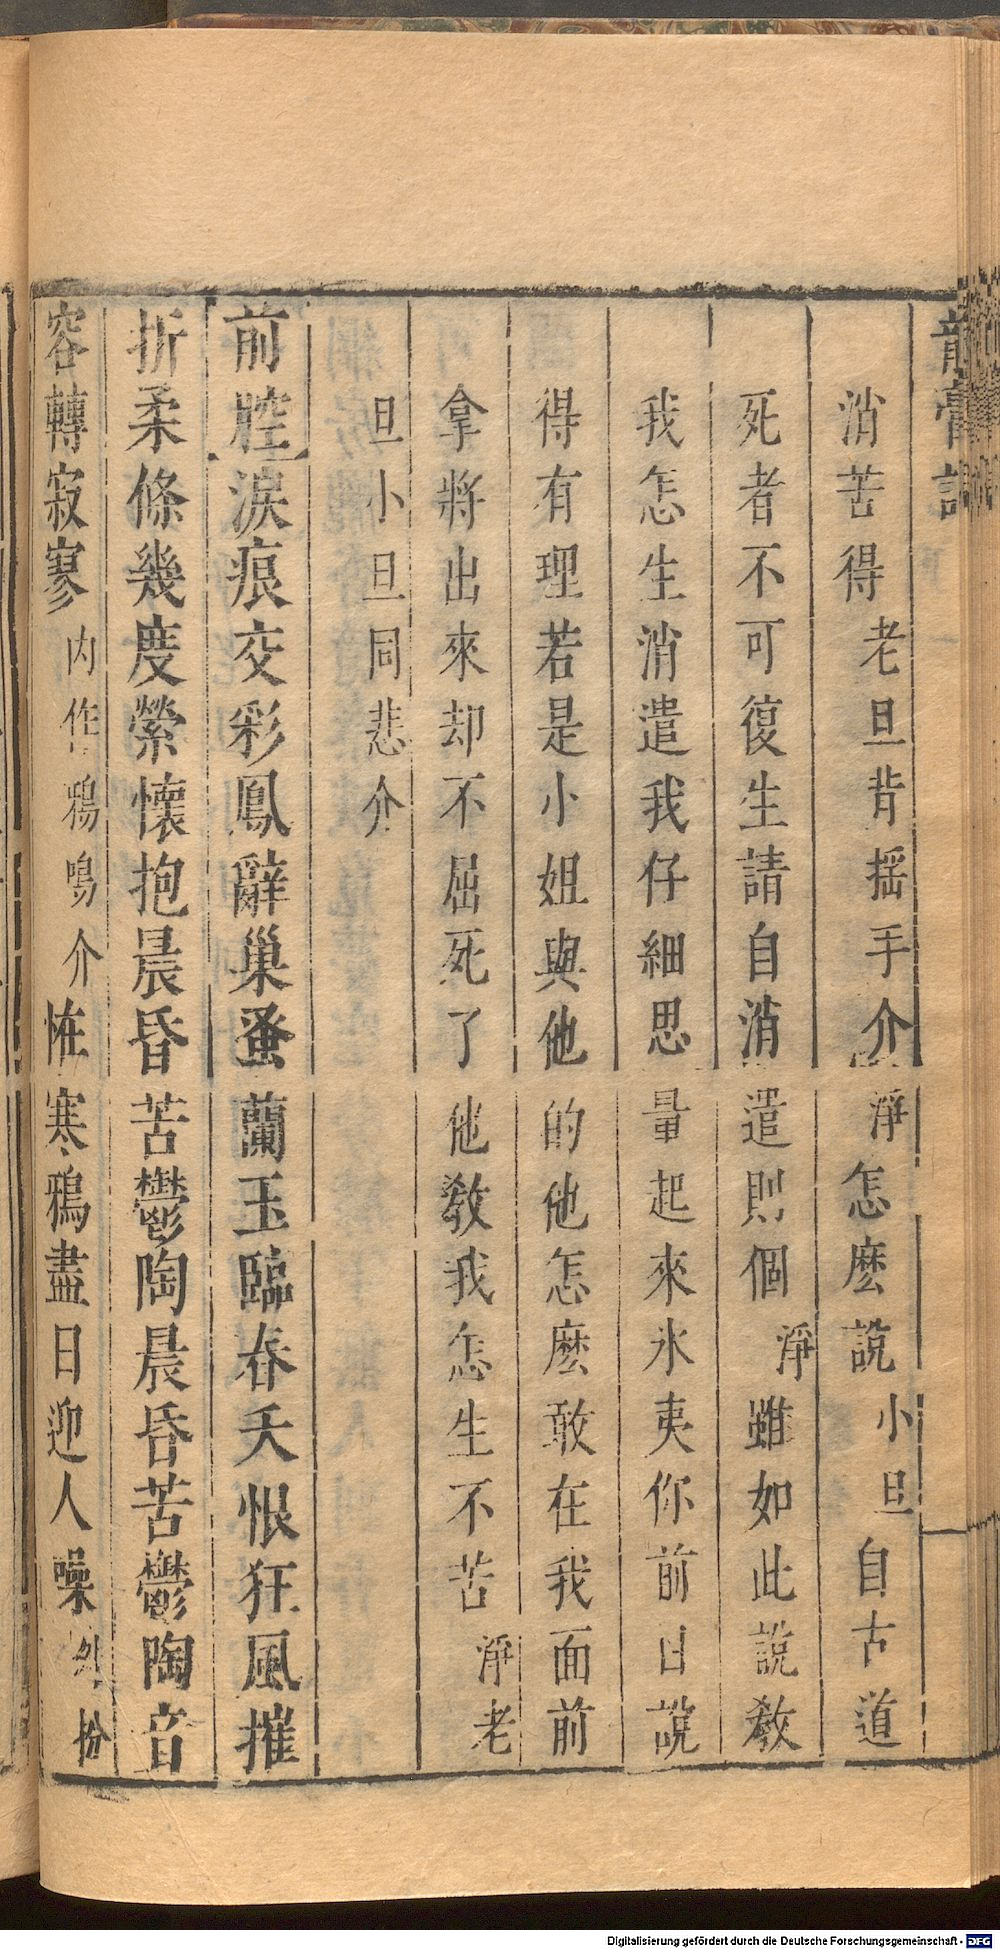 龍膏記
消苦得老旦背摇手介淨怎麽說小旦自古道
死者不可復生請自消遣則個淨雖如此說教
我怎生消遣我仔細思量起來氷夷你前日說
得有理若是小姐與他的他怎麽敢在我面前
拿將出來却不屈死了他教我怎生不苦淨老
旦小旦同悲介
前腔淚痕交彩鳳辭巢蚤蘭玉臨春夭恨狂風摧
折柔條幾度縈懷抱晨昏苦鬱陶晨昏苦鬱陶音
容轉寂寥内作鴉鳴介恠寒鴉盡日迎人噪外扮
Digitalisierung gefördert durch die Deutsche Forschungsgemeinschaft - DFG